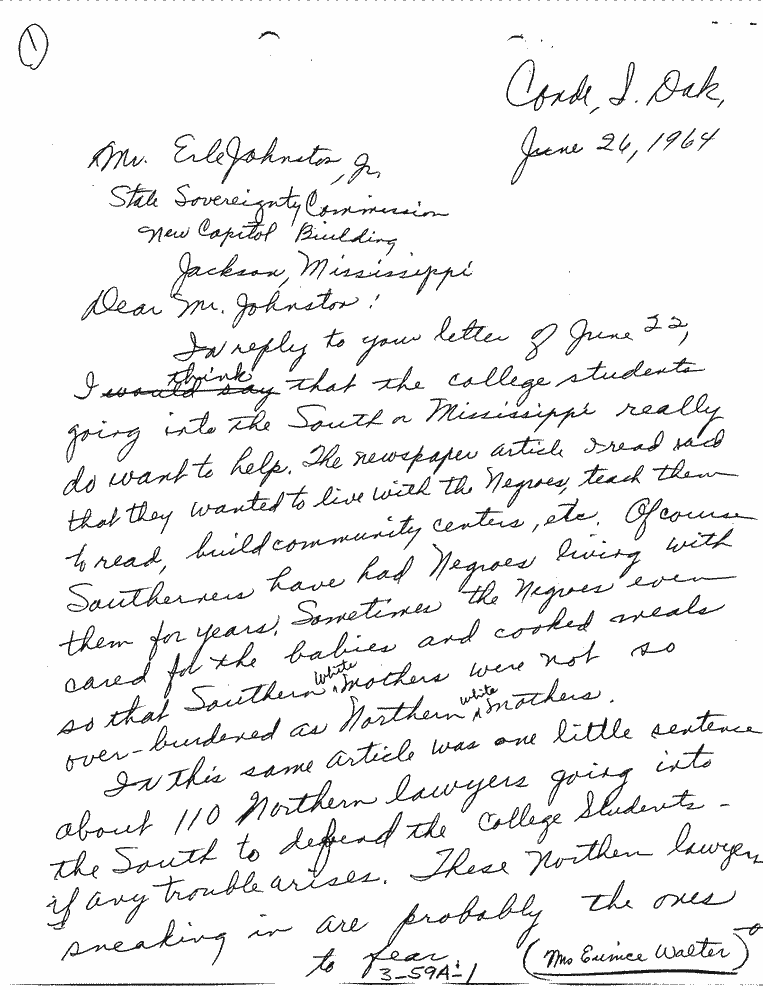 1
Conde, S. Dak,
June 26, 1964
Mr. Erle Johnston, Jr,
State Sovereignty Commission
New Capitol Building
Jackson, Mississippi
Dear Mr. Johnston:
In reply to your letter of June 22,
think
I would say that the college students
going into the South or Mississippi really
do want to help. The newspaper article I read said
that they wanted to live with the Negroes, teach them
to read, build community centers, etc. Of course
Southerners have had Negroes living with
them for years. Sometimes the Negroes even
cared for the babies and cooked meals
so that Southern white mothers were not so
over-burdened as Northern white mothers.
In this same article was one little sentence
about 110 Northern lawyers going into
the South to defend the College Students -
if any trouble arises. These Northen lawyers
sneaking in are probably the ones
to fear.
(Mrs Eunice Walter)
3-59A-1